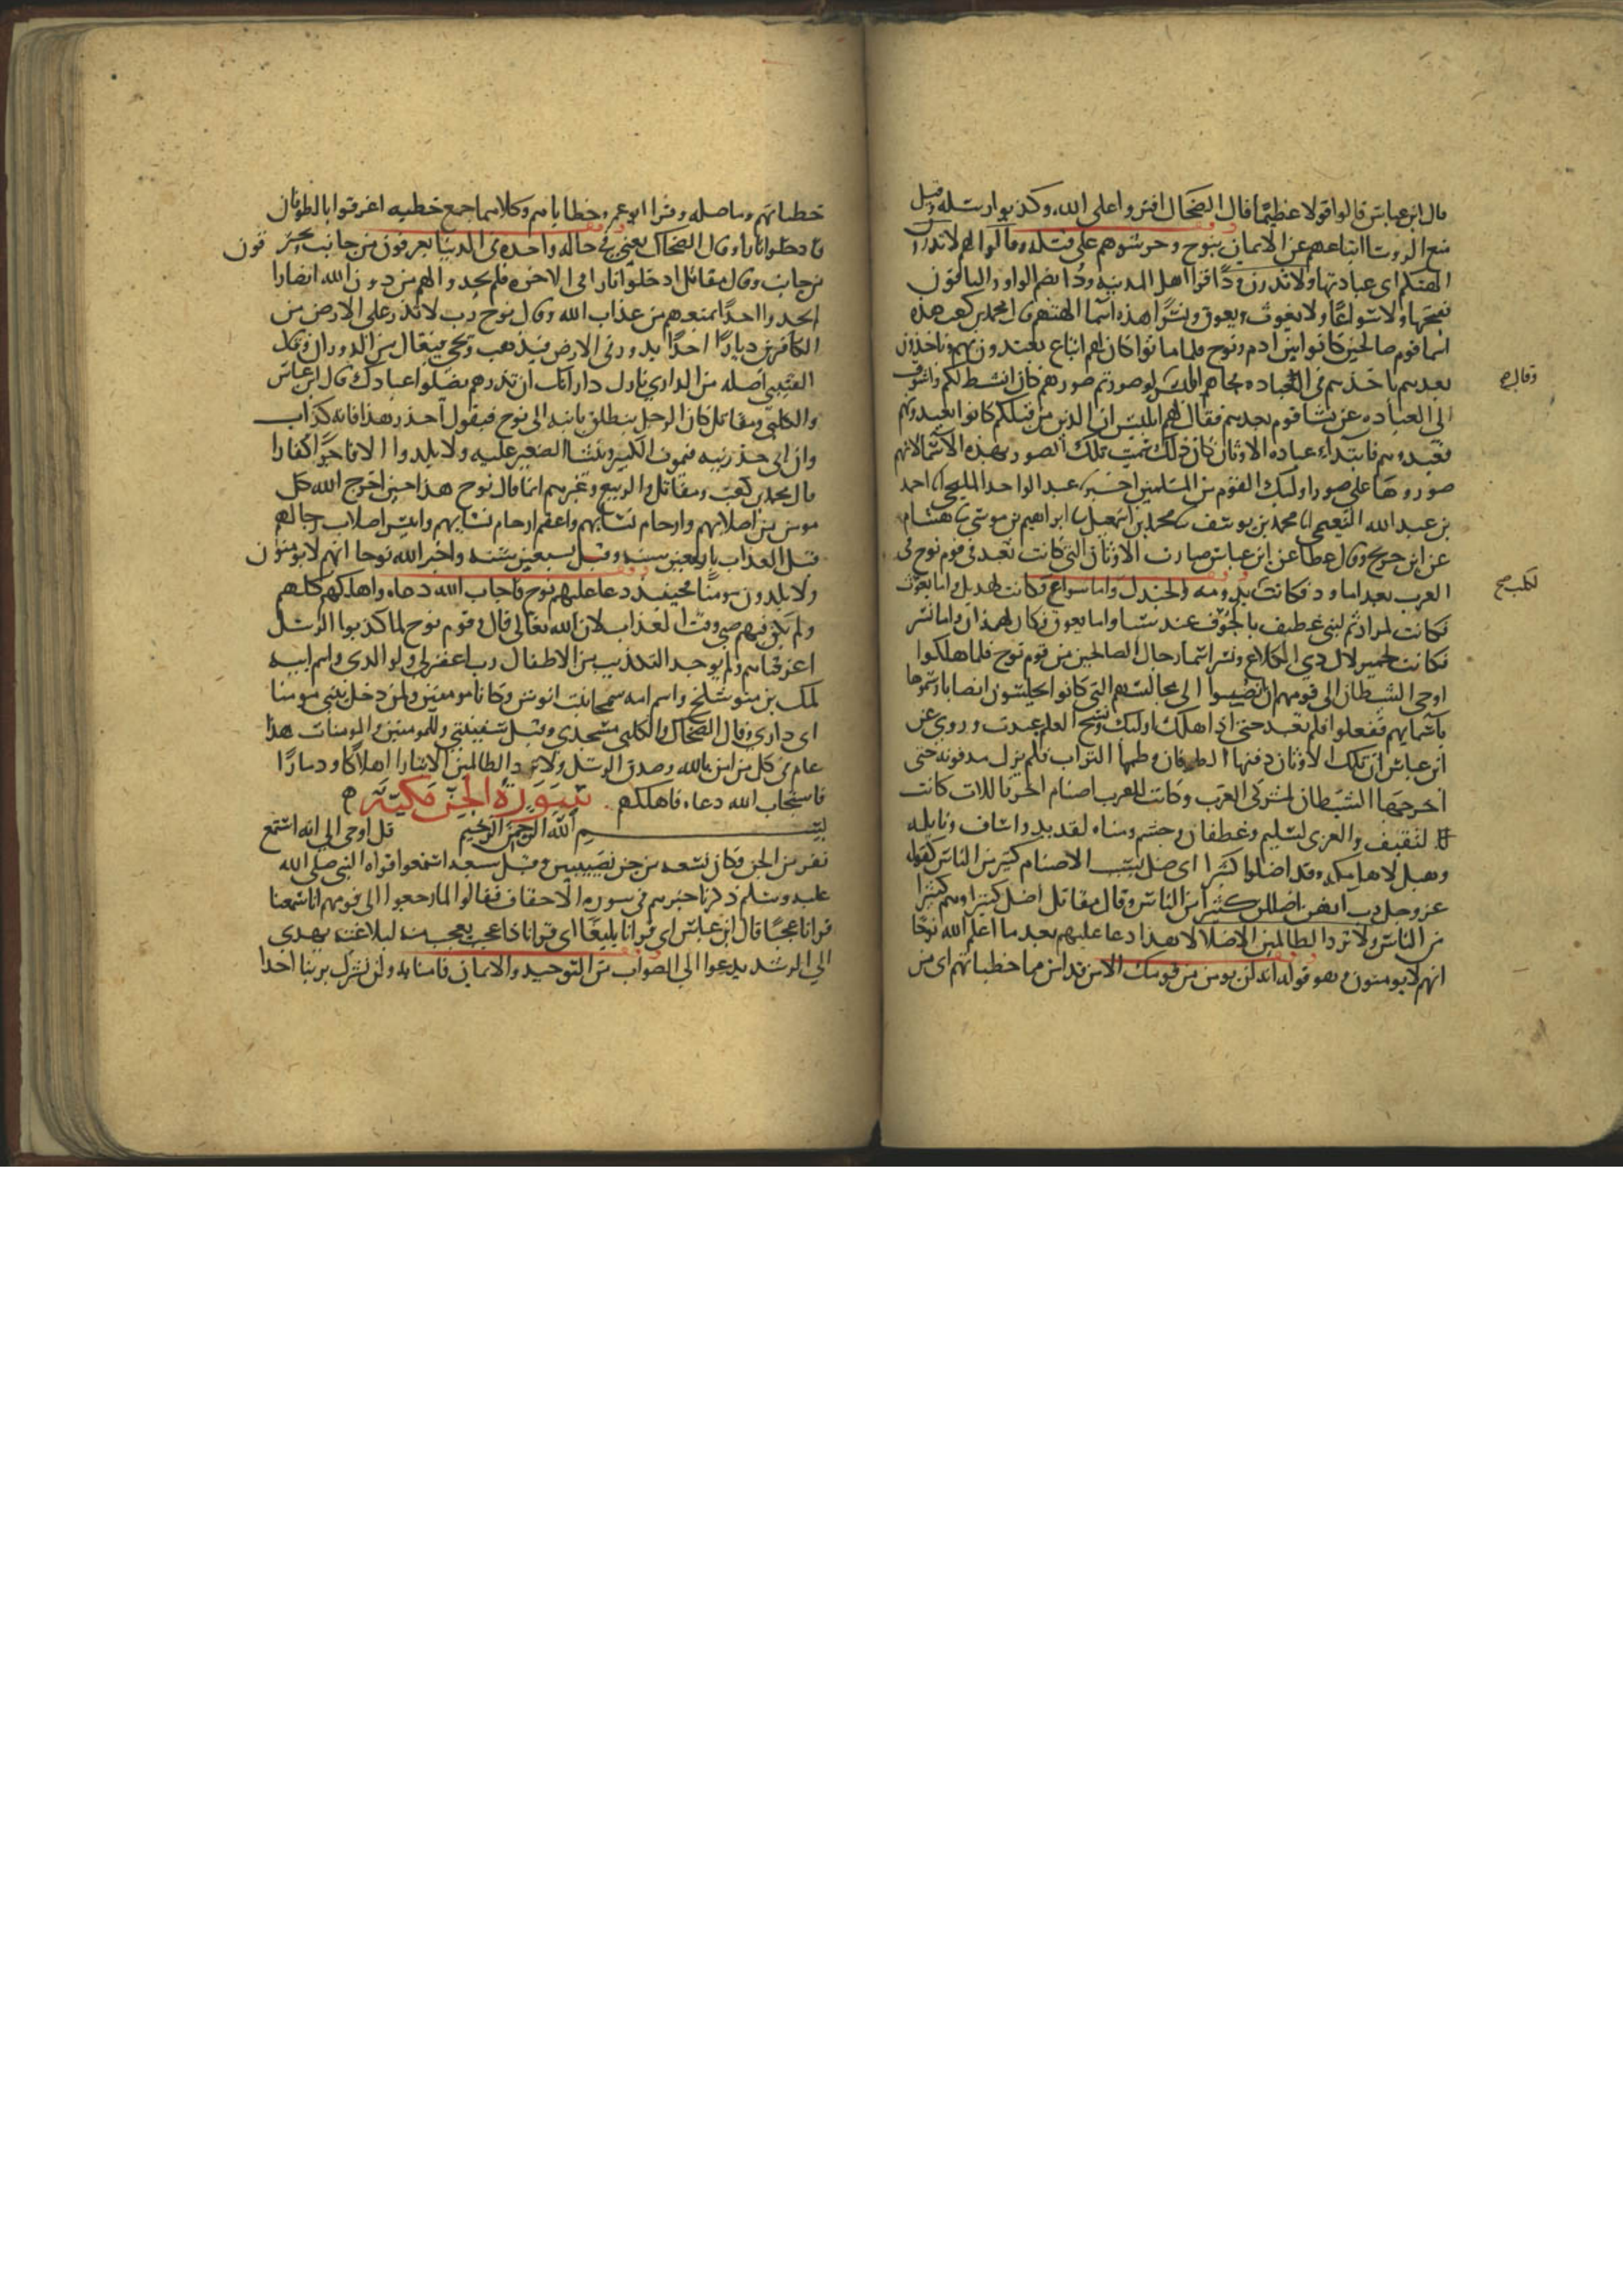 قال ابن عباس قالوا قولا عظيما قال الضحاك افتروا على الله وكذبوا رسله وقيل
منع الروسا اتباعهم عن الايمان بنوح وحرشوهم على قتله وقالوا لهم لا تذرن
الهتكم اى عبادتها ولا تذرن ودا قرا اهل المدينه ودا بضم الواو والباقون
بفتحها ولا سواعا ولا يغوث ويعوق ونسرا هذه اسما الهتهم قال محمد بن كعب هذه
اسما قوم صالحين كانوا بين ادم ونوح فلما ماتوا كان لهم اتباع يقتدون بهم وياخذون
بعدهم ماخذهم فى العباده فجاهم ابليس لو صورتم صورهم كان انشط لكم واشوق
وقال صح
الى العباده عن نشا قوم بعدهم فقال لهم ابليس ان الذين من قبلكم كانوا يعبدونهم
فعبدوهم فابتداء عباده الاوثان كان ذلك سميت تلك الصور بهذه الاسما لانهم
صوروها على صور اوليك القوم من المسلمين اخبرنا عبد الواحد المليحى انا احمد
بن عبد الله النعيمى انا محمد بن يوسف نا محمد بن اسمعيل نا ابراهيم بن موسى نا هشام
عن ابن جريج وقال عطا عن ابن عباس صارت الاوثان التى كانت تعبد فى قوم نوح فى
العرب بعد اما ود فكانت بدومه الجندل واما سواع فكانت لهذيل واما يغوث
لكلب صح
فكانت لمراد ثم لبنى غطيف بالجوف عند سبا واما يعوق فكان لهمذان واما نسر
فكانت لحمير لال ذى الكلاع ونسر اسما رجال الصالحين من قوم نوح فلما هلكوا
اوحى الشيطان الى قومهم ان انصبوا الى مجالسهم التى كانوا يجلسون انصابا وسموها
باسمايهم ففعلوا فلم تعبد حتى اذا هلك اوليك ونسخ العلم عبدت وروى عن
ابن عباس ان تلك الاوثان دفنها الطوفان وطمها التراب فلم يزل مدفونه حتى
اخرجها الشيطان لمشركى العرب وكانت للعرب اصنام اخر فاللات كانت
لثقيف والعزى لسليم وغطفان وجشم ومناه لقديد واساف ونايله
وهبل لاهل مكه وقد اضلوا كثيرا اى ضل بسبب الاصنام كثير من الناس كقوله
عز وجل رب انهن اضللن كثيرا من الناس وقال مقاتل اضل كبراوهم كثيرا
من الناس ولا تزد الظالمين الا ضلالا هذا دعا عليهم بعد ما اعلم الله نوحا
انهم لا يومنون وهو قوله انه لن يومن من قومك الا من قد امن مما خطياتهم اى من
خطياتهم وما صله وقرا ابو عمرو خطاياهم وكلاهما جمع خطيه اغرقوا بالطوفان
فادخلوا نارا وقال الضحاك يعنى فى حاله واحده فى الدنيا يغرقون من جانب ويحترقون
من جانب وقال مقاتل ادخلوا نارا فى الاخره فلم يجدوا لهم من دون الله انصارا
لم يجدوا احدا يمنعهم من عذاب الله وقال نوح رب لا تذر على الارض من
الكافرين ديارا احدا يدور فى الارض فيذهب ويجى فيعال من الدوران وقال
القتيبى اصله من الدار اى نازل دارا انك ان تذرهم يضلوا عبادك قال ابن عباس
والكلبى ومقاتل كان الرجل ينطلق بابنه الى نوح فيقول احذر هذا فانه كذاب
وان ابى حذرنيه فيموت الكبير وينشا الصغير عليه ولا يلدوا الا فاجرا كفارا
قال محمد بن كعب ومقاتل والربيع وغيرهم انما قال نوح هذا حين اخرج الله كل
مومن من اصلابهم وارحام نسايهم واعقم ارحام نسايهم وايبس اصلاب رجالهم
قبل العذاب باربعين سنه وقيل سبعين سنه واخبر الله نوحا انهم لا يومنون
ولا يلدون مومنا فحينيذ دعا عليهم نوح فاجاب الله دعاه واهلكهم كلهم
ولم يكن فيهم صبى وقت العذاب لان الله تعالى قال وقوم نوح لما كذبوا الرسل
اغرقناهم ولم يوجد التكذيب من الاطفال رب اغفر لى ولوالدى واسم ابيه
لمك بن متوشلخ واسم امه سمحا بنت انوش وكانا مومنين ولمن دخل بيتى مومنا
اى دارى وقال الضحاك والكلبى مسجدى وقيل سفينتى وللمومنين والمومنات هذا
عام فى كل من امن بالله وصدق الرسل ولا تزد الظالمين الا تبارا اهلاكا ودمارا
فاستجاب الله دعاه فاهلكهم سورة الجن مكية
بسم الله الرحمن الرحيم قل اوحى الى انه استمع
نفر من الجن وكان تسعه من جن نصيبين وقيل سبعه استمعوا قراه النبى صلى الله
عليه وسلم ذكرنا خبرهم فى سوره الاحقاف فقالوا لما رجعوا الى قومهم انا سمعنا
قرانا عجبا قال ابن عباس اى قرانا بليغا اى قرانا ذا عجب يعجب منه لبلاغته يهدى
الى الرشد يدعوا الى الصواب من التوحيد والايمان فامنا به ولن نشرك بربنا احدا